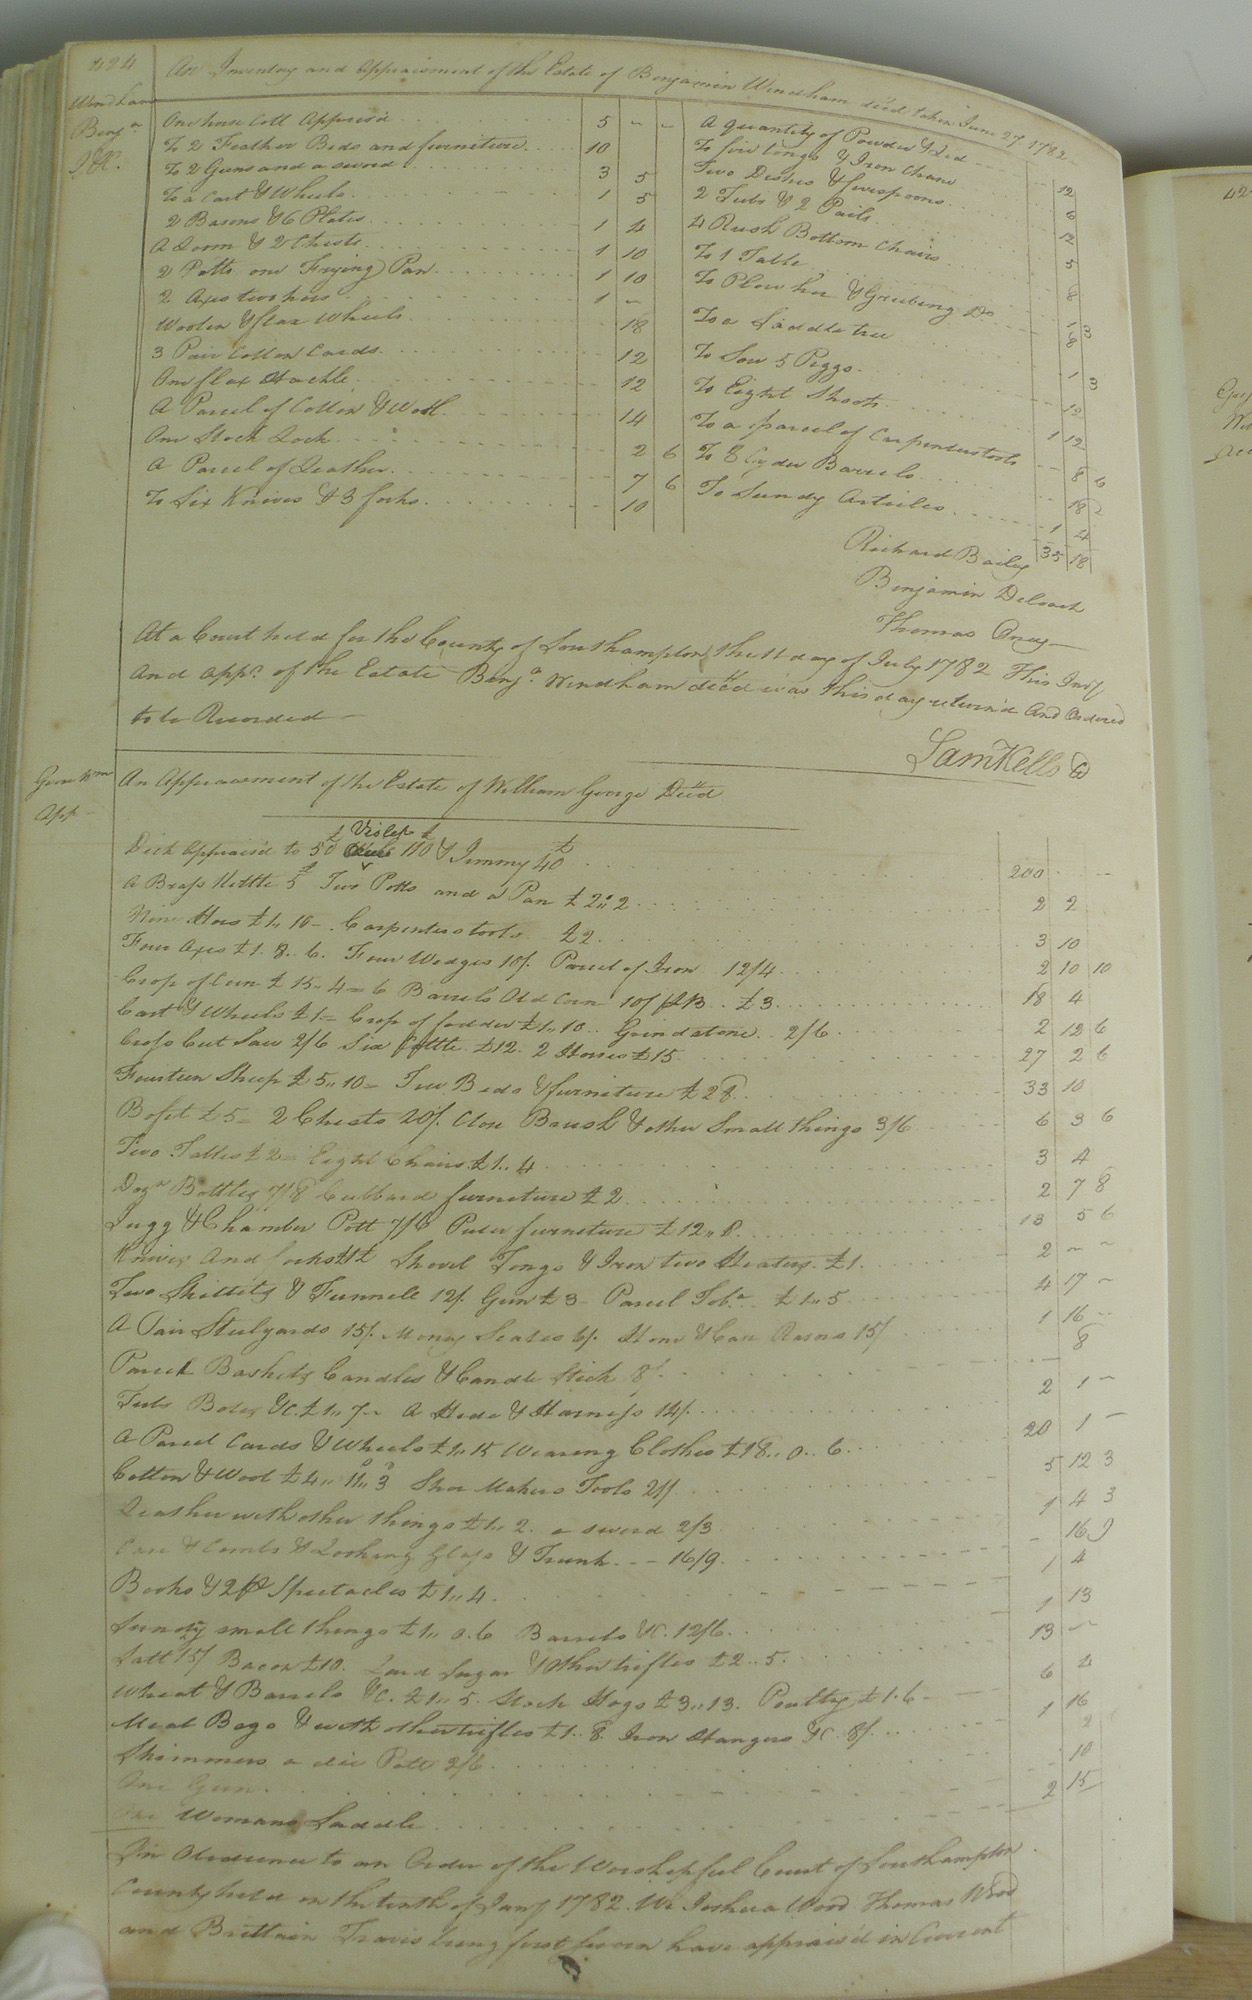 424
An Inventory and Appraisment of the Estate of Benjamin Windham decd taken June 27 1782
Windham
Benja
I &c.
One horse Colt Apprais'd 5 - -
To 2 Feather Beds and furniture 10
To 2 Guns and a sword 3 5
To a Cart & Wheels 1 5
2 Basons & 6 Plates 1 4
A Loom & 2 Chests 1 10
2 Potts one Frying Pan 1 10
2 Axes two hoes 1 -
Woolen & flax Wheels 18
3 Pair Cotton Cards 12
One flax Hackle 12
A Parcel of Cotton & Wool 14
One Stock Lock 2 6
A Parcel of Leather 7 6
To Six Knives & 3 forks 10
A quantity of Powder & Led 12
To fire tongs & Iron Chane 6
Two Dishes & spoons 12
2 Tubs & 2 Pails 5
4 Rush Bottom Chairs 8
To 1 Table 1 3
To Plow hoe & Grubing Do 8
To a Saddle tree 1 3
To Sow 5 Piggs 12
To Eight Shoats 1 12
To a parcel of Carpenters tools 8 6
To 8 Cyder Barrels 18
To Sundry Articles 1 4
35 18
Richard Bailey
Benjamin Deloach
Thomas Oney
At a Court held for the County of Southampton the 11 day of July 1782 This Invy
And Appt. of the Estate Benja. Windham decd was this day return'd And Ordered
to be Recorded
Sam Kello
George Wm
App
An Appraisment of the Estate of William George Decd
Dick Appraisd to 50£ Violet £110 & Jimmy £40 200 - -
A Brass Kettle 5/ Two Potts and a Pan £2,,2 2 2
Nine Hoes £1,,10 - Carpenters tools £2 3 10
Four Axes £1.8.6. Four Wedges 10/. Parcel of Iron 12/4 2 10 10
Crop of Corn £15-4= 6 Barrels Old Corn 10/ pB £3 18 4
Cart & Wheels £1= Crop of fodder £1,,10.. Grindstone 2/6 2 12 6
Cross Cut Saw 2/6 Six Cattle £12. 2 Horses £15 27 2 6
Fourteen Sheep £5,,10= Two Beds & furniture £28 33 10
Bofet £5= 2 Chests 20/. Close Brush & other Small things 3/6 6 3 6
Two Tables £2= Eight Chairs £1..4 3 4
Dozn Bottles 7/8 Cubbard furniture £2 2 7 8
Jugg & Chamber Pott 7/6 Puter furniture £12,,8 13 5 6
Knives And forks £1 Shovel Tongs & Iron two Heaters £1 2 - -
Two Skillits & Funnell 12/. Gun £3 - Parcel Toba. £1,,5 4 17 -
A Pair Steelyards 15/. Money Scales 6/. Hone & Case Rasors 15/ 1 16 -
Parcel Baskets Candles & Candle Stick 8/. 8
Tubs &C. £1,,7- A Hide & Harness 14/. 2 1 -
A Parcel Cards & Wheels £1,,15 Wearing Clothes £18,,0..6 20 1 -
Cotton & Wool £4,,11,,3 Shoe Makers Tools 21/ 5 12 3
Leather with other things £1,,2. a sword 2/3 1 4 3
Case & Combs & Looking Glass & Trunk 16/9 16 9
Books & 2 pr Spectacles £1,,4 1 4
Sundry small things £1,,0.6 Barrels &C. 12/6 1 13
Salt 15/ Bacon £10. Lard Sugar & Other trifles £2..5 13 -
Wheat & Barrels &C. £1,,5. Stock Hogs £3,,13. Poultry £1.6 6 4
Meal Bags & with other trifles £1.8. Iron Hangers &C. 8/. 1 16
Skimmers a Pott 2/6 2
One Gun 10
One Womans Saddle 2 15
In Obedience to an Order of the Worshipful Court of Southampton
County held on the tenth of Jany 1782. We Joshua Wood Thomas Wood
and Brittain Travis being first sworn have apprais'd in Current